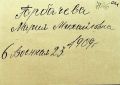 Арбачева
Мария Михайловна
6 Военная 23
1909г.